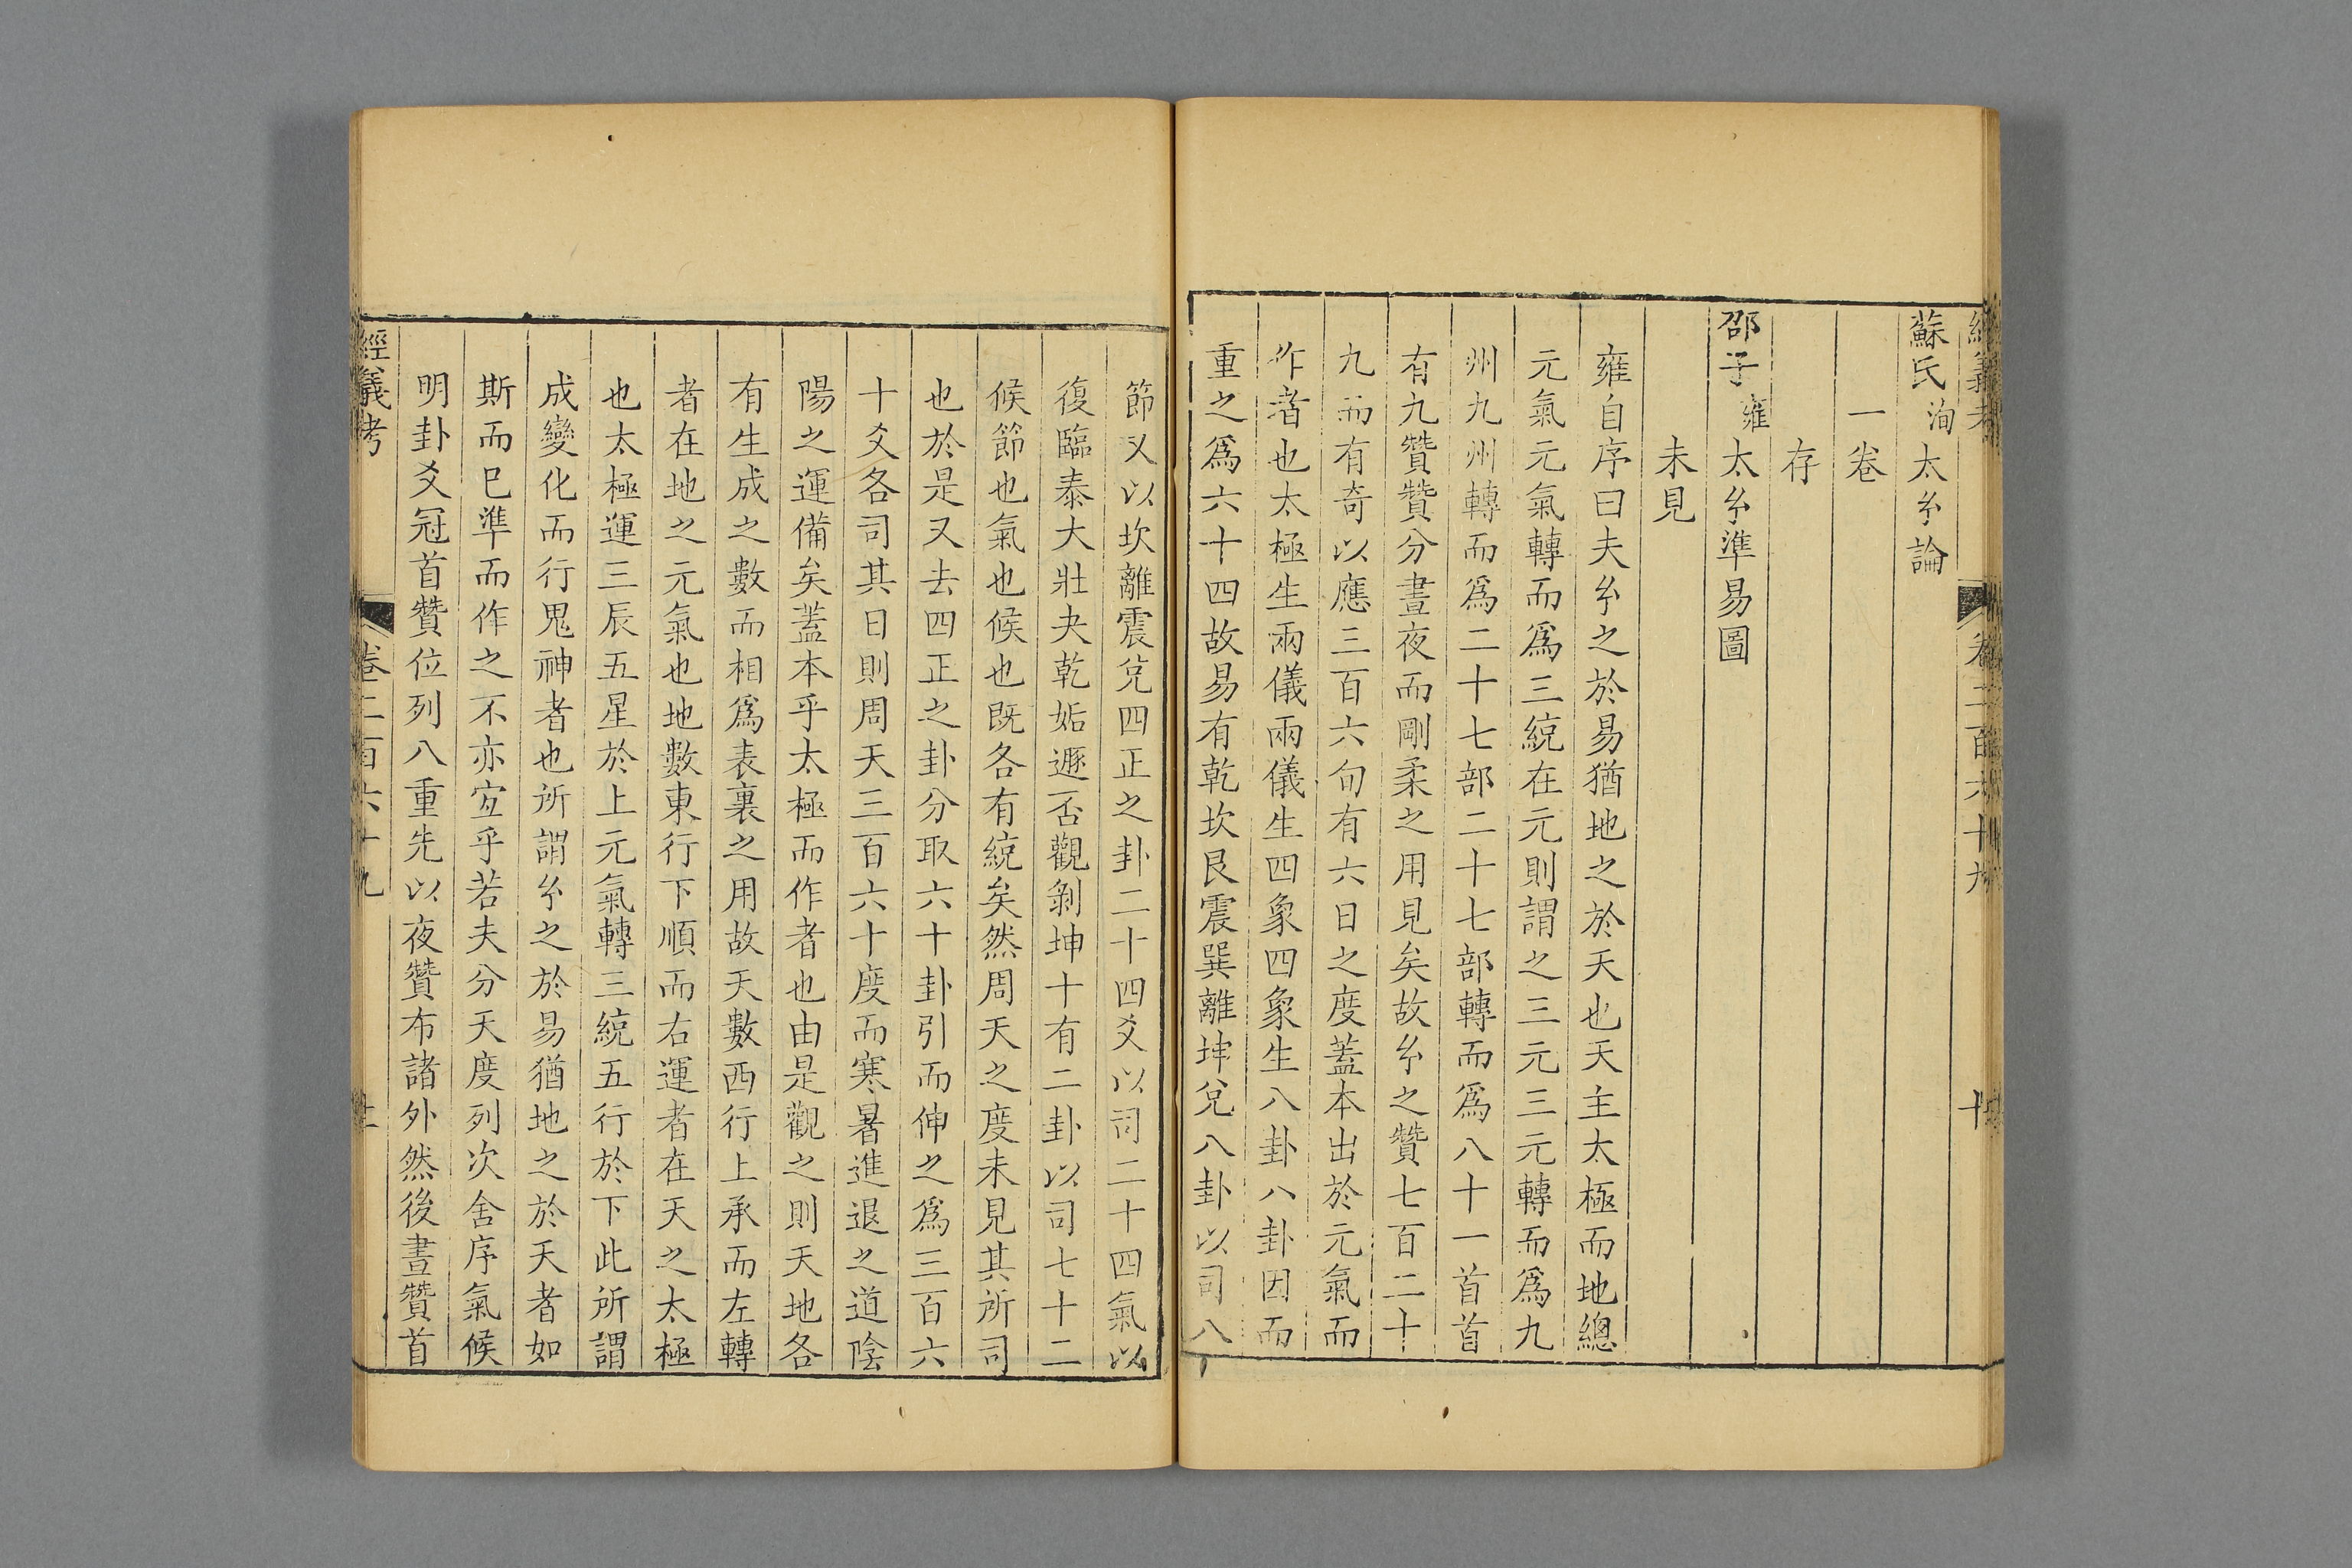 經義考 卷二百六十九 十
蘇氏洵太玄論
一卷
存
邵子雍太玄準易圖
未見
雍自序曰夫玄之於易猶地之於天也天主太極而地總
元氣元氣轉而爲三統在元則謂之三元三元轉而爲九
州九州轉而爲二十七部二十七部轉而爲八十一首首
有九贊贊分晝夜而剛柔之用見矣故玄之贊七百二十
九而有奇以應三百六旬有六日之度蓋本出於元氣而
作者也太極生兩儀兩儀生四象四象生八卦八卦因而
重之爲六十四故易有乾坎艮震巽離坤兌八卦以司八
節又以坎離震兌四正之卦二十四爻以司二十四氣以
復臨泰大壯夬乾姤遯否觀剝坤十有二卦以司七十二
候節也氣也候也既各有統矣然周天之度未見其所司
也於是又去四正之卦分取六十卦引而伸之爲三百六
十爻各司其日則周天三百六十度而寒暑進退之道陰
陽之運備矣蓋本乎太極而作者也由是觀之則天地各
有生成之數而相爲表裏之用故天數西行上承而左轉
者在地之元氣也地數東行下順而右運者在天之太極
也太極運三辰五星於上元氣轉三統五行於下此所謂
成變化而行鬼神者也所謂玄之於易猶地之於天者如
斯而巳準而作之不亦宜乎若夫分天度列次舍序氣候
明卦爻冠首贊位列八重先以夜贊布諸外然後晝贊首
經義考 卷二百六十九